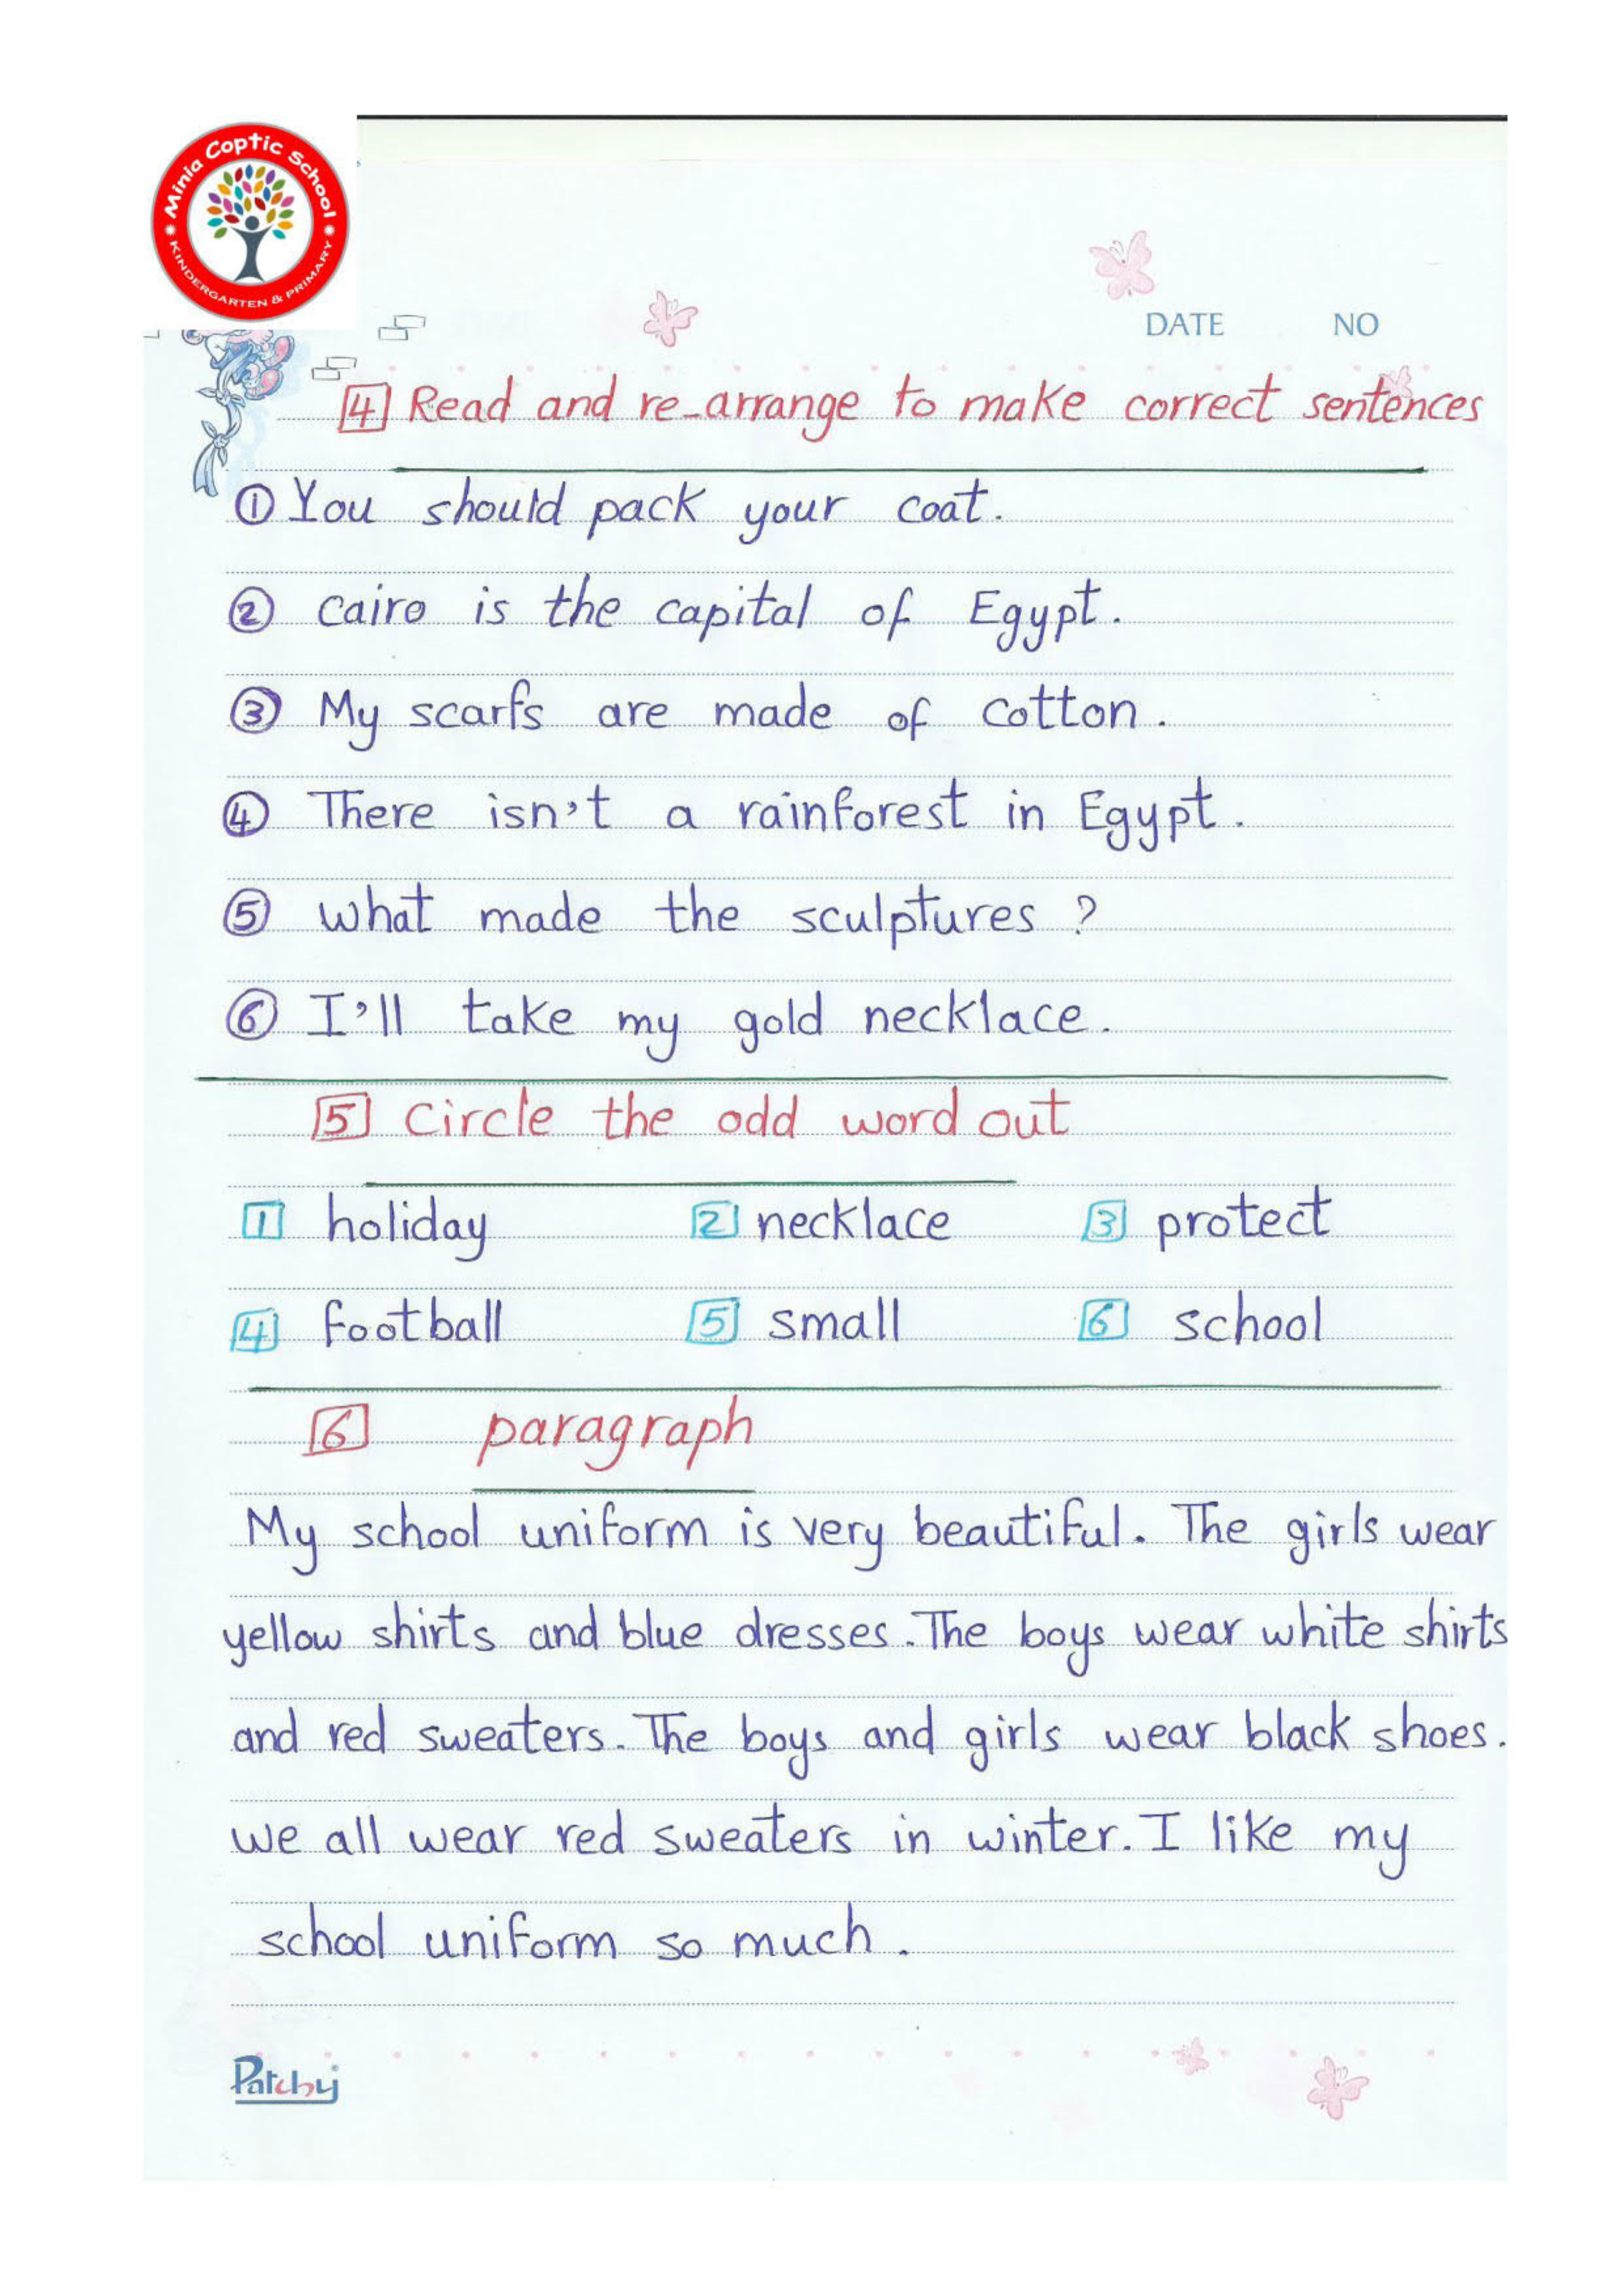 Minia Coptic School
KINDERGARTEN & PRIMARY
DATE NO
4 Read and re-arrange to make correct sentences
1 You should pack your coat.
2 cairo is the capital of Egypt.
3 My scarfs are made of cotton.
4 There isn't a rainforest in Egypt.
5 what made the sculptures ?
6 I'll take my gold necklace.
5 Circle the odd word out
1 holiday 2 necklace 3 protect
4 football 5 small 6 school
6 paragraph
My school uniform is very beautiful. The girls wear
yellow shirts and blue dresses. The boys wear white shirts
and red sweaters. The boys and girls wear black shoes.
we all wear red sweaters in winter. I like my
school uniform so much.
Patchy